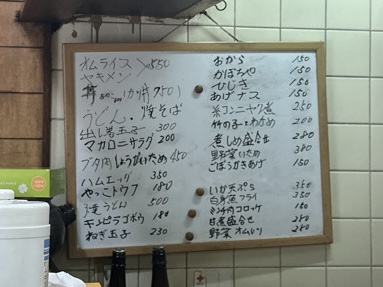 オムライス 〉550
ヤキメン
丼 (カツ丼750)
うどん、焼そば
出し巻玉子 300
マカロニサラダ 200
ブタ肉しょうがいため 450
ハムエッグ 350
やっこトウフ 180
湯どうふ 500
キンピラゴボウ 180
ねぎ玉子 230
おから 150
かぼちゃ 150
ひじき 150
あげナス 150
糸コンニャク煮 250
竹の子とわかめ 200
煮しめ盛合せ 280
野菜いため 380
ごぼうかきあげ 150
いか天ぷら 350
白身魚フライ 350
コロッケ 180
盛合せ 280
野菜オムレツ 280